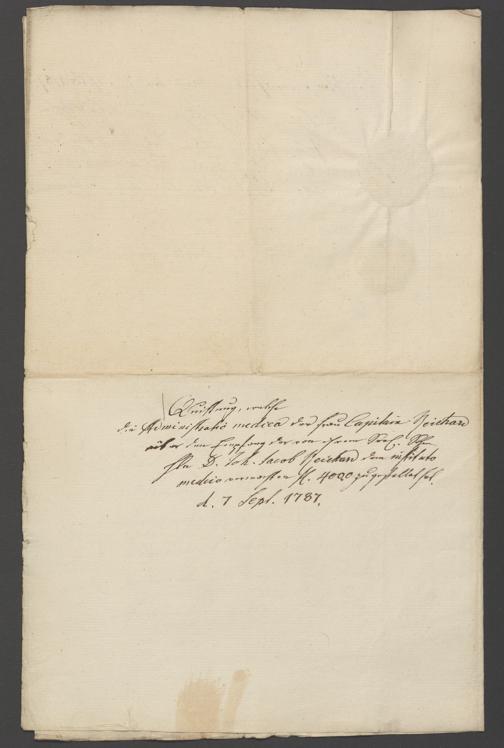 Quittung, welche
die Administratio medica der Frau Capitain Reichard
über den Empfang der von ihrem
D. Joh. Jacob Reichard dem instituto
medico vermachten fl. 4000 zugestellet hat
d. 7 Sept. 1787.